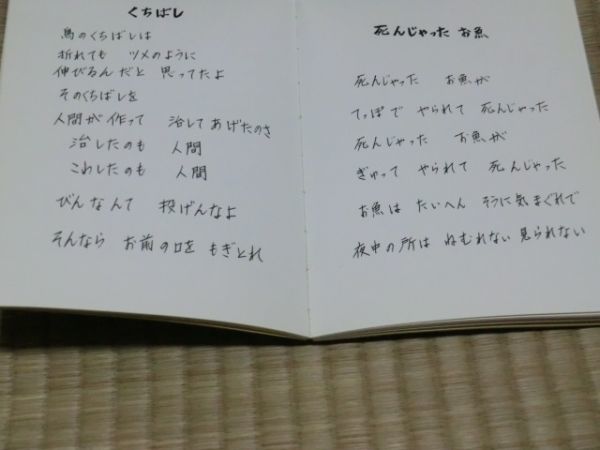 くちばし
鳥のくちばしは
折れても ツメのように
伸びるんだと 思ってたよ
そのくちばしを
人間が作って 治してあげたのさ
治したのも 人間
こわしたのも 人間
びんなんて 投げんなよ
そんなら お前の口を もぎとれ
死んじゃった お魚
死んじゃった お魚が
てっぽで やられて 死んじゃった
死んじゃった お魚が
ぎゅって やられて 死んじゃった
お魚は たいへん そうに気まぐれで
夜中の所は ねむれない 見られない